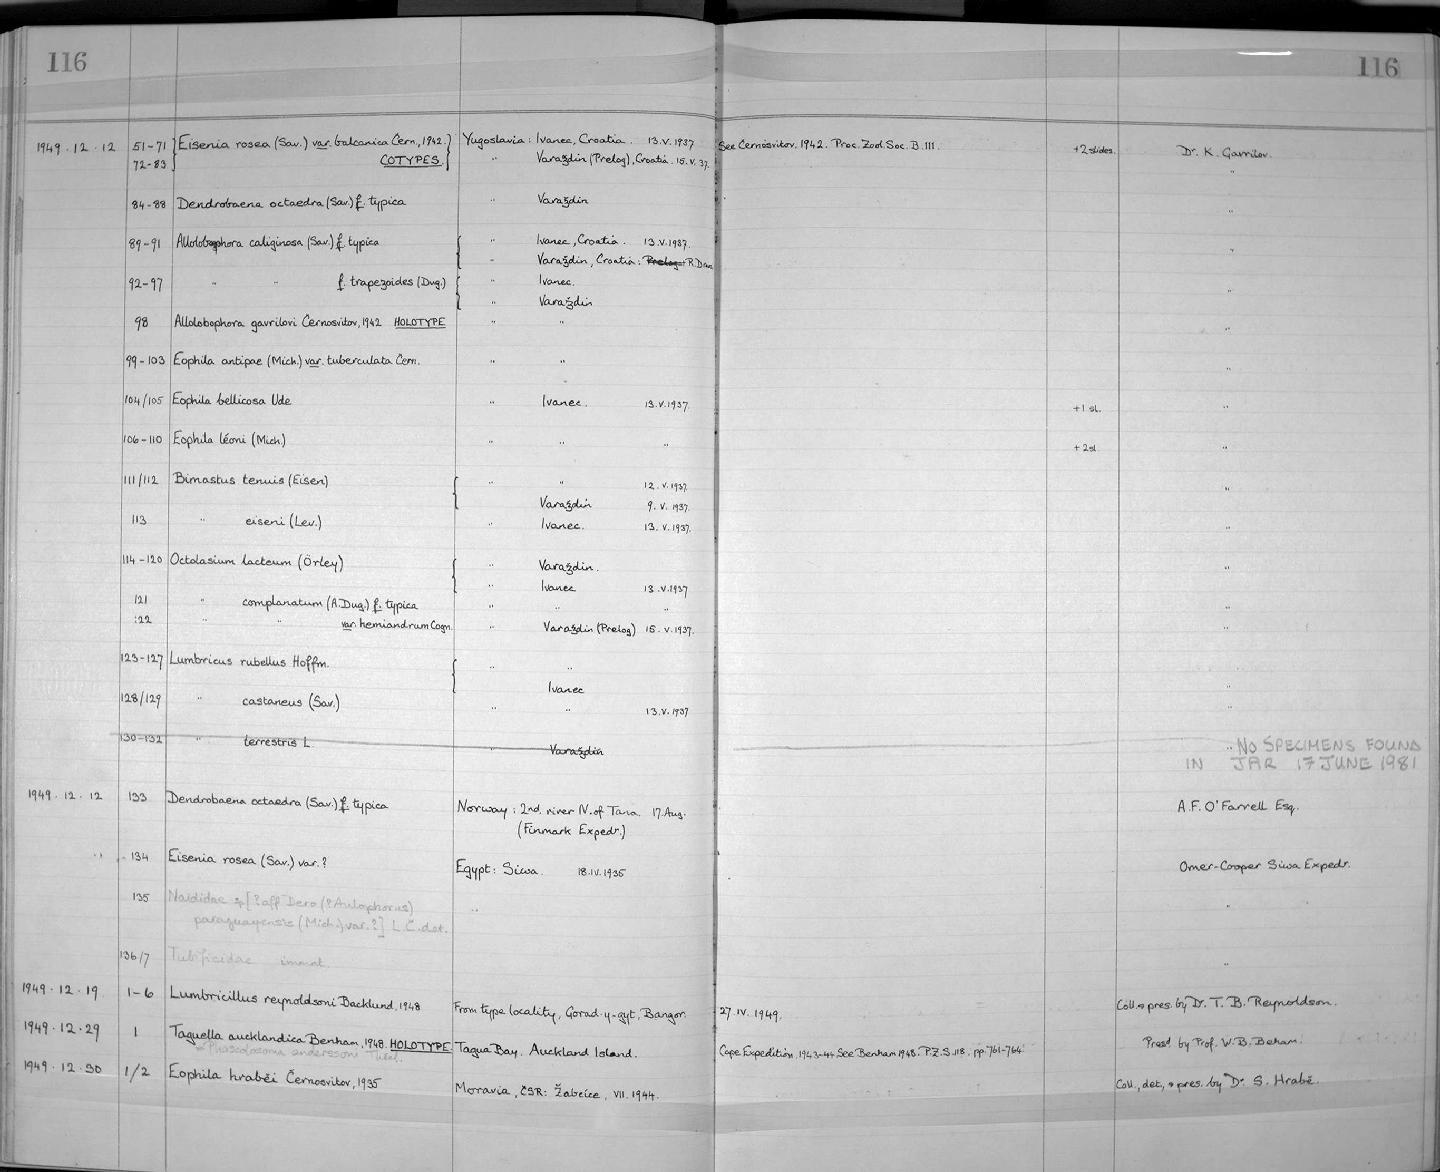 116 116
1949.12.12 51-71 Eisenia rosea (Sav.) var. balcanica Čern., 1942. Yugoslavia: Ivanec, Croatia. 13.V.1937 See Černosvitov. 1942. Proc. Zool. Soc. B. 111. +2 slides. Dr. K. Gavrilov.
72-83 COTYPES " Varaždin (Prelog), Croatia. 15.V.37. "
84-88 Dendrobaena octaedra (Sav.) f. typica " Varaždin "
89-91 Allolobophora caliginosa (Sav.) f. typica " Ivanec, Croatia. 13.V.1937. "
" Varaždin, Croatia: Prelog
92-97 " " f. trapezoides (Dug.) " Ivanec. "
" Varaždin
98 Allolobophora gavrilovi Černosvitov, 1942 HOLOTYPE " " "
99-103 Eophila antipae (Mich.) var. tuberculata Čern. " " "
104/105 Eophila bellicosa Ude " Ivanec. 13.V.1937. +1 sl. "
106-110 Eophila léoni (Mich.) " " " +2sl. "
111/112 Bimastus tenuis (Eisen) " " 12.V.1937. "
Varaždin 9.V.1937.
113 " eiseni (Lev.) " Ivanec. 13.V.1937. "
114-120 Octolasium lacteum (Örley) " Varaždin. "
" Ivanec 13.V.1937
121 " complanatum (A.Dug.) f. typica " " " "
:22 " " var. hemiandrum Cogn. " Varaždin (Prelog) 15.V.1937. "
123-127 Lumbricus rubellus Hoffm. " " "
Ivanec
128/129 " castaneus (Sav.) " " 13.V.1937 "
130-132 " terrestris L " Varaždin " NO SPECIMENS FOUND
IN JAR 17 JUNE 1981
1949.12.12 133 Dendrobaena octaedra (Sav.) f. typica Norway: 2nd. river N. of Tana. 17.Aug. A.F. O'Farrell Esq.
(Finmark Expedn.)
" 134 Eisenia rosea (Sav.) var.? Egypt: Siwa. 18.IV.1935 Omer-Cooper Siwa Expedn.
135 Naididae [?aff Dero (?Aulophorus) " "
paraguayensis (Mich.) var.?] L.Č. det.
136/7 Tubificidae immat. "
1949.12.19 1-6 Lumbricillus reynoldsoni Backlund, 1948 From type locality, Gorad-y-gyt, Bangor. 27.IV.1949. Coll. & pres. by Dr. T. B. Reynoldson.
1949.12.29 1 Taguella aucklandica Benham, 1948. HOLOTYPE. Tagua Bay. Auckland Island. Cape Expedition, 1943-44. See Benham 1948. P.Z.S. 118. pp. 761-764. Presd by Prof. W. B. Beham.
= Phascolosoma anderssoni Théel.
1949.12.30 1/2 Eophila hrabĕi Černosvitov, 1935 Moravia, ČSR: Žabčice, VII.1944. Coll., det., & pres. by Dr S. Hrabĕ.